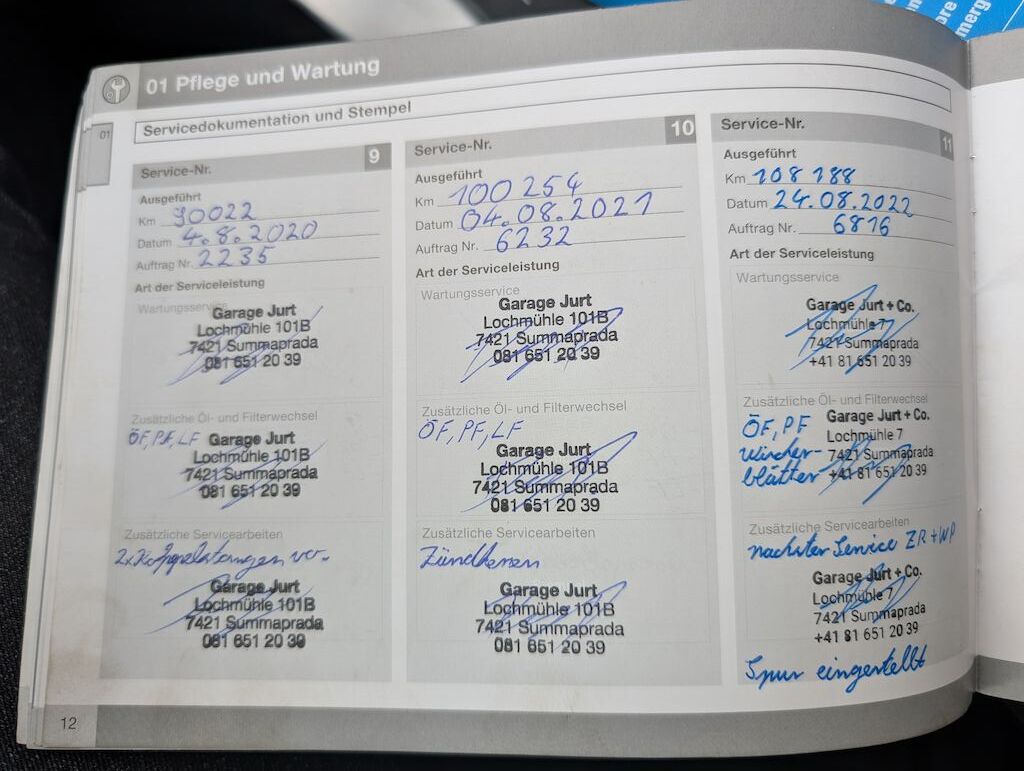 ore
merg
01 Pflege und Wartung
01
Servicedokumentation und Stempel
Service-Nr. 9
Ausgeführt
Km 90022
Datum 4.8.2020
Auftrag Nr. 2235
Art der Serviceleistung
Wartungsservice
Garage Jurt
Lochmühle 101B
7421 Summaprada
081 651 20 39
Zusätzliche Öl- und Filterwechsel
ÖF, PF, LF
Garage Jurt
Lochmühle 101B
7421 Summaprada
081 651 20 39
Zusätzliche Servicearbeiten
2x
Garage Jurt
Lochmühle 101B
7421 Summaprada
081 651 20 39
Service-Nr. 10
Ausgeführt
Km 100 254
Datum 04.08.2021
Auftrag Nr. 6232
Art der Serviceleistung
Wartungsservice
Garage Jurt
Lochmühle 101B
7421 Summaprada
081 651 20 39
Zusätzliche Öl- und Filterwechsel
ÖF, PF, LF
Garage Jurt
Lochmühle 101B
7421 Summaprada
081 651 20 39
Zusätzliche Servicearbeiten
Zündkerzen
Garage Jurt
Lochmühle 101B
7421 Summaprada
081 651 20 39
Service-Nr. 11
Ausgeführt
Km 108 188
Datum 24.08.2022
Auftrag Nr. 6816
Art der Serviceleistung
Wartungsservice
Garage Jurt + Co.
Lochmühle 7
7421 Summaprada
+41 81 651 20 39
Zusätzliche Öl- und Filterwechsel
ÖF, PF
Wischer-
blätter
Garage Jurt + Co.
Lochmühle 7
7421 Summaprada
+41 81 651 20 39
Zusätzliche Servicearbeiten
nächster Service ZR + WP
Garage Jurt + Co.
Lochmühle 7
7421 Summaprada
+41 81 651 20 39
Spur eingestellt
12